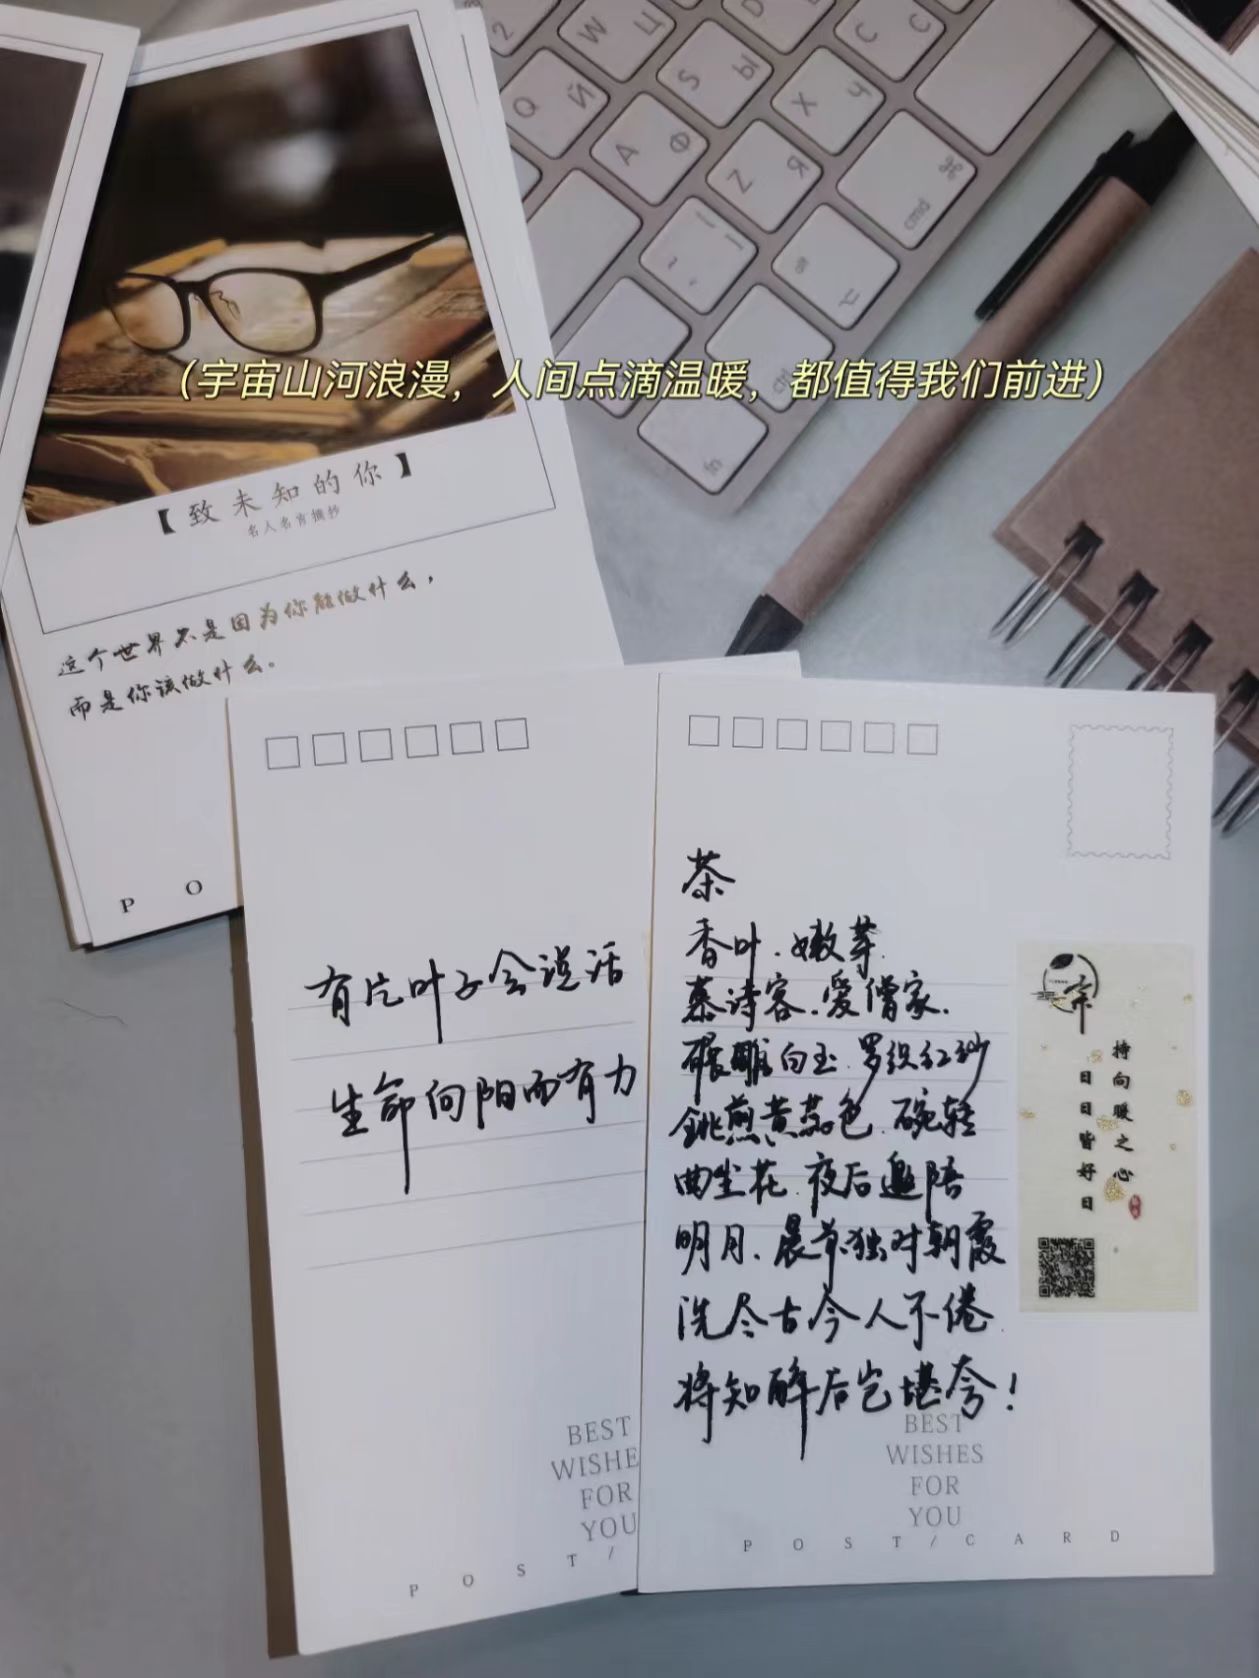 2
W Ц
D
C С
Q Й
S Ы
X Ч
A Ф
Z Я
⌘
cmd
alt
ctrl
fn
（宇宙山河浪漫，人间点滴温暖，都值得我们前进）
【致未知的你】
名人名言摘抄
这个世界不是因为你能做什么，
而是你该做什么。
P O
有片叶子会说话
生命向阳而有力
BEST
WISHE
FOR
YOU
P O S T /
茶
香叶.嫩芽.
慕诗客.爱僧家.
碾雕白玉.罗织红纱
铫煎黄蕊色.碗轻
曲尘花.夜后邀陪
明月.晨前独对朝霞
洗尽古今人不倦.
将知醉后岂堪夸！
持向暖之心
日日皆好日
BEST
WISHES
FOR
YOU
P O S T / C A R D